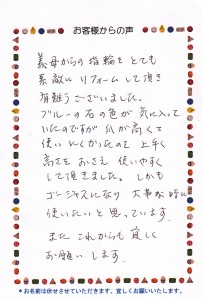 お客様からの声
義母からの指輪をとても
素敵にリフォームして頂き
有難うございました。
ブルーの石の色が気に入って
いたのですが爪が高くて
使いにくかったのを上手く
高さをおさえ使いやすく
して頂きました。しかも
ゴージャスになり大事な時に
使いたいと思っています。
またこれからも宜しく
お願いします。
*お名前は伏せさせていただきます、宜しくお願いいたします。